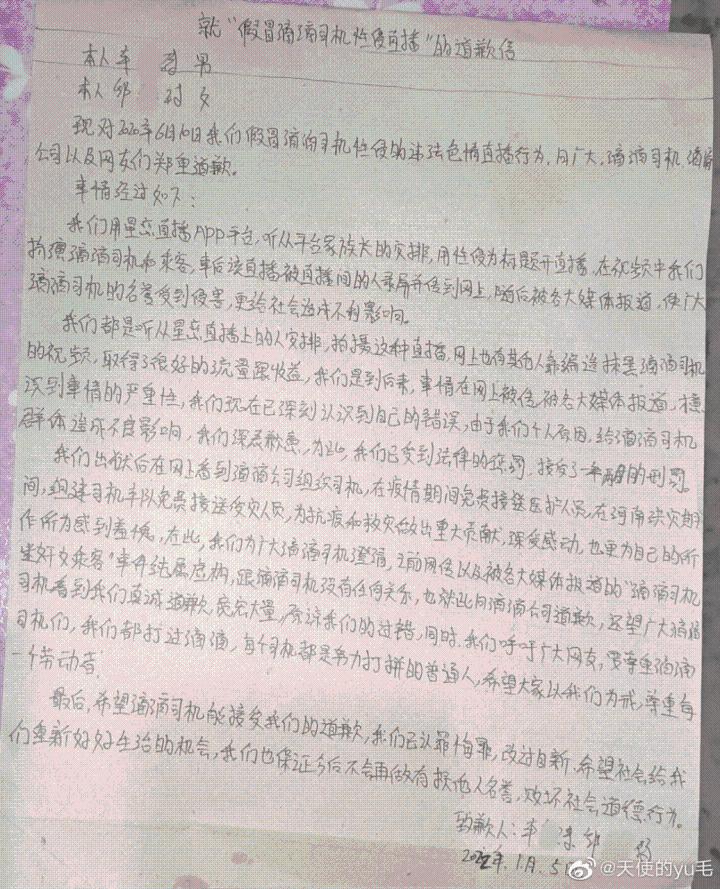 就“假冒滴滴司机性侵直播”的道歉信
本人 李 男
本人 邹 女
现对2020年6月10日我们假冒滴滴司机性侵的违法色情直播行为,向广大滴滴司机、滴滴
公司以及网友们郑重道歉。
事情经过如下:
我们用星恋直播APP平台,听从平台家族长的安排,用性侵为标题开直播,在视频中我们
扮演滴滴司机和乘客,事后该直播被直播间的人录屏并传到网上,随后被各大媒体报道,使广大
滴滴司机的名誉受到侵害,更给社会造成不良影响。
我们都是听从星恋直播上的人安排,拍摄这种直播,网上也有其他人靠编造抹黑滴滴司机
的视频,取得了很好的流量跟收益,我们是到后来,事情在网上被传,被各大媒体报道,才意
识到事情的严重性,我们现在已深刻认识到自己的错误,由于我们个人原因,给滴滴司机
群体造成不良影响,我们深表歉意,为此,我们已受到法律的惩罚,接受了一年 的刑罚。
我们出狱后在网上看到滴滴公司组织司机,在疫情期间免费接送医护人员,在河南洪灾期
间,组建司机车队免费接送受灾人员,为抗疫和救灾做出重大贡献,深受感动,也更为自己的所
作所为感到羞愧,在此,我们为广大滴滴司机澄清,之前网传以及被各大媒体报道的“滴滴司机
迷奸女乘客”事件纯属虚构,跟滴滴司机没有任何关系,也对此向滴滴公司道歉,还望广大滴滴
司机看到我们真诚道歉,宽宏大量,原谅我们的过错,同时,我们呼吁广大网友,要尊重滴滴
司机们,我们都打过滴滴,每个司机都是努力打拼的普通人,希望大家以我们为戒,尊重每
一个劳动者。
最后,希望滴滴司机能接受我们的道歉,我们已认罪悔罪,改过自新,希望社会给我
们重新好好生活的机会,我们也保证今后不会再做有损他人名誉,败坏社会道德行为。
致歉人:李 邹
2022年.1月.5日
@天使的yu毛